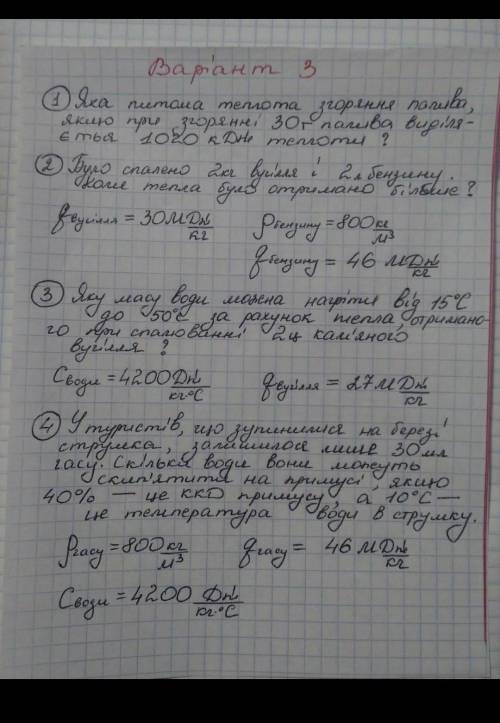 Варіант 3
① Яка питома теплота згоряння палива,
якщо при згорянні 30г палива виділя-
ється 1020 кДж теплоти?
② Було спалено 2кг вугілля і 2л бензину.
Коли тепла було отримано більше?
qвугілля = 30 МДж/кг ρбензину = 800 кг/м³
qбензину = 46 МДж/кг
③ Яку масу води можна нагріти від 15°С
до 50°С за рахунок тепла, отримано-
го при спалюванні 2ц кам'яного
вугілля?
Своди = 4200 Дж/кг·°С qвугілля = 27 МДж/кг
④ У туристів, що зупинилися на березі
струмка, залишилося лише 30 мл
гасу. Скільки води вони можуть
скип'ятити на примусі, якщо
40% — це ККД примусу, а 10°С —
це температура води в струмку.
ρгасу = 800 кг/м³ qгасу = 46 МДж/кг
Своди = 4200 Дж/кг·°С